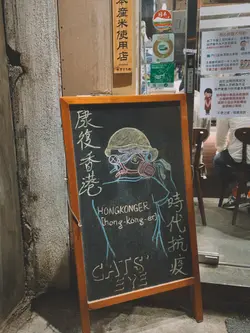 本産米使用店
康復香港
HONGKONGER
[hong·kong·er]
時代抗疫
CATS'
EYE